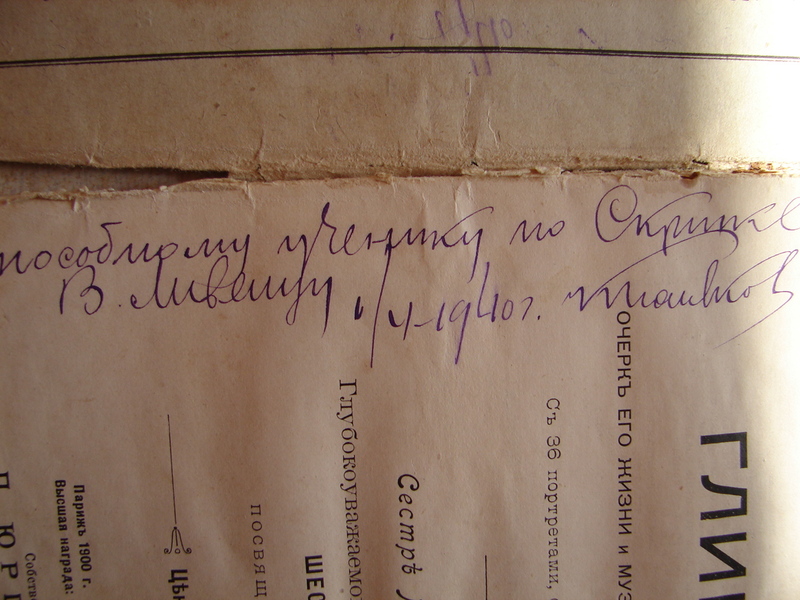 пособному ученику по Скрипке
В. Лившицу 1/V-1940г.
ГЛИ
ОЧЕРКЪ ЕГО ЖИЗНИ и МУЗ
Съ 36 портретами,
Сестрѣ
Глубокоуважаемо
ШЕС
посвящ
ЦѢН
Парижъ 1900 г.
Высшая награда:
Собстве
П. ЮРГ